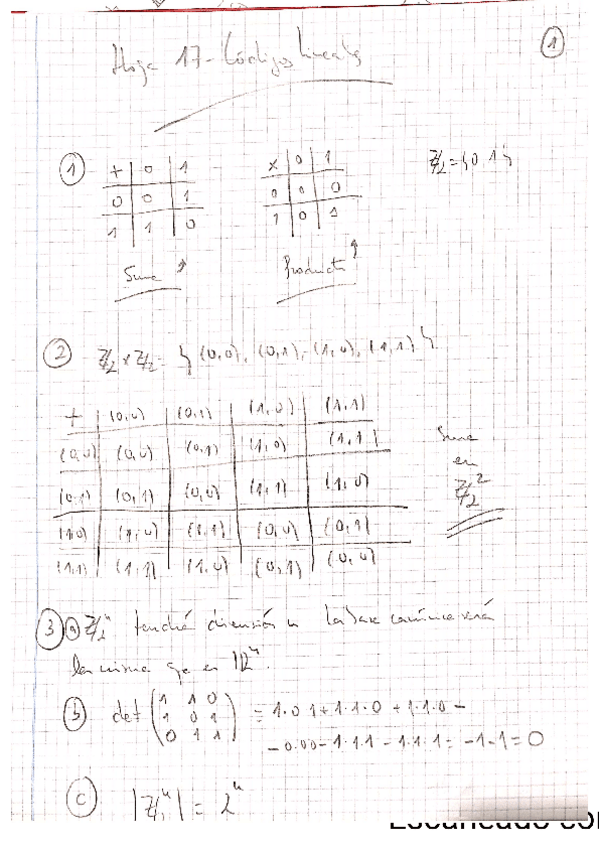 Hoja 17 - Códigos lineales
1
1
+ 0 1
0 0 1
1 1 0
Suma
x 0 1
0 0 0
1 0 1
Producto
Z/2 = {0 1}
2 Z/2 x Z/2 = { (0,0), (0,1), (1,0), (1,1) }
+ (0,0) (0,1) (1,0) (1,1)
(0,0) (0,0) (0,1) (1,0) (1,1)
(0,1) (0,1) (0,0) (1,1) (1,0)
(1,0) (1,0) (1,1) (0,0) (0,1)
(1,1) (1,1) (1,0) (0,1) (0,0)
Suma
en
Z/2²
3 a Z/2ⁿ tendrá dimensión n la base canónica será
la misma que en ℝⁿ.
b det (1 1 0
1 0 1
0 1 1) = 1·0·1+1·1·0 + 1·1·0 -
- 0·0·0 - 1·1·1 - 1·1·1 = -1-1 = 0
c |Z/2ⁿ| = 2ⁿ